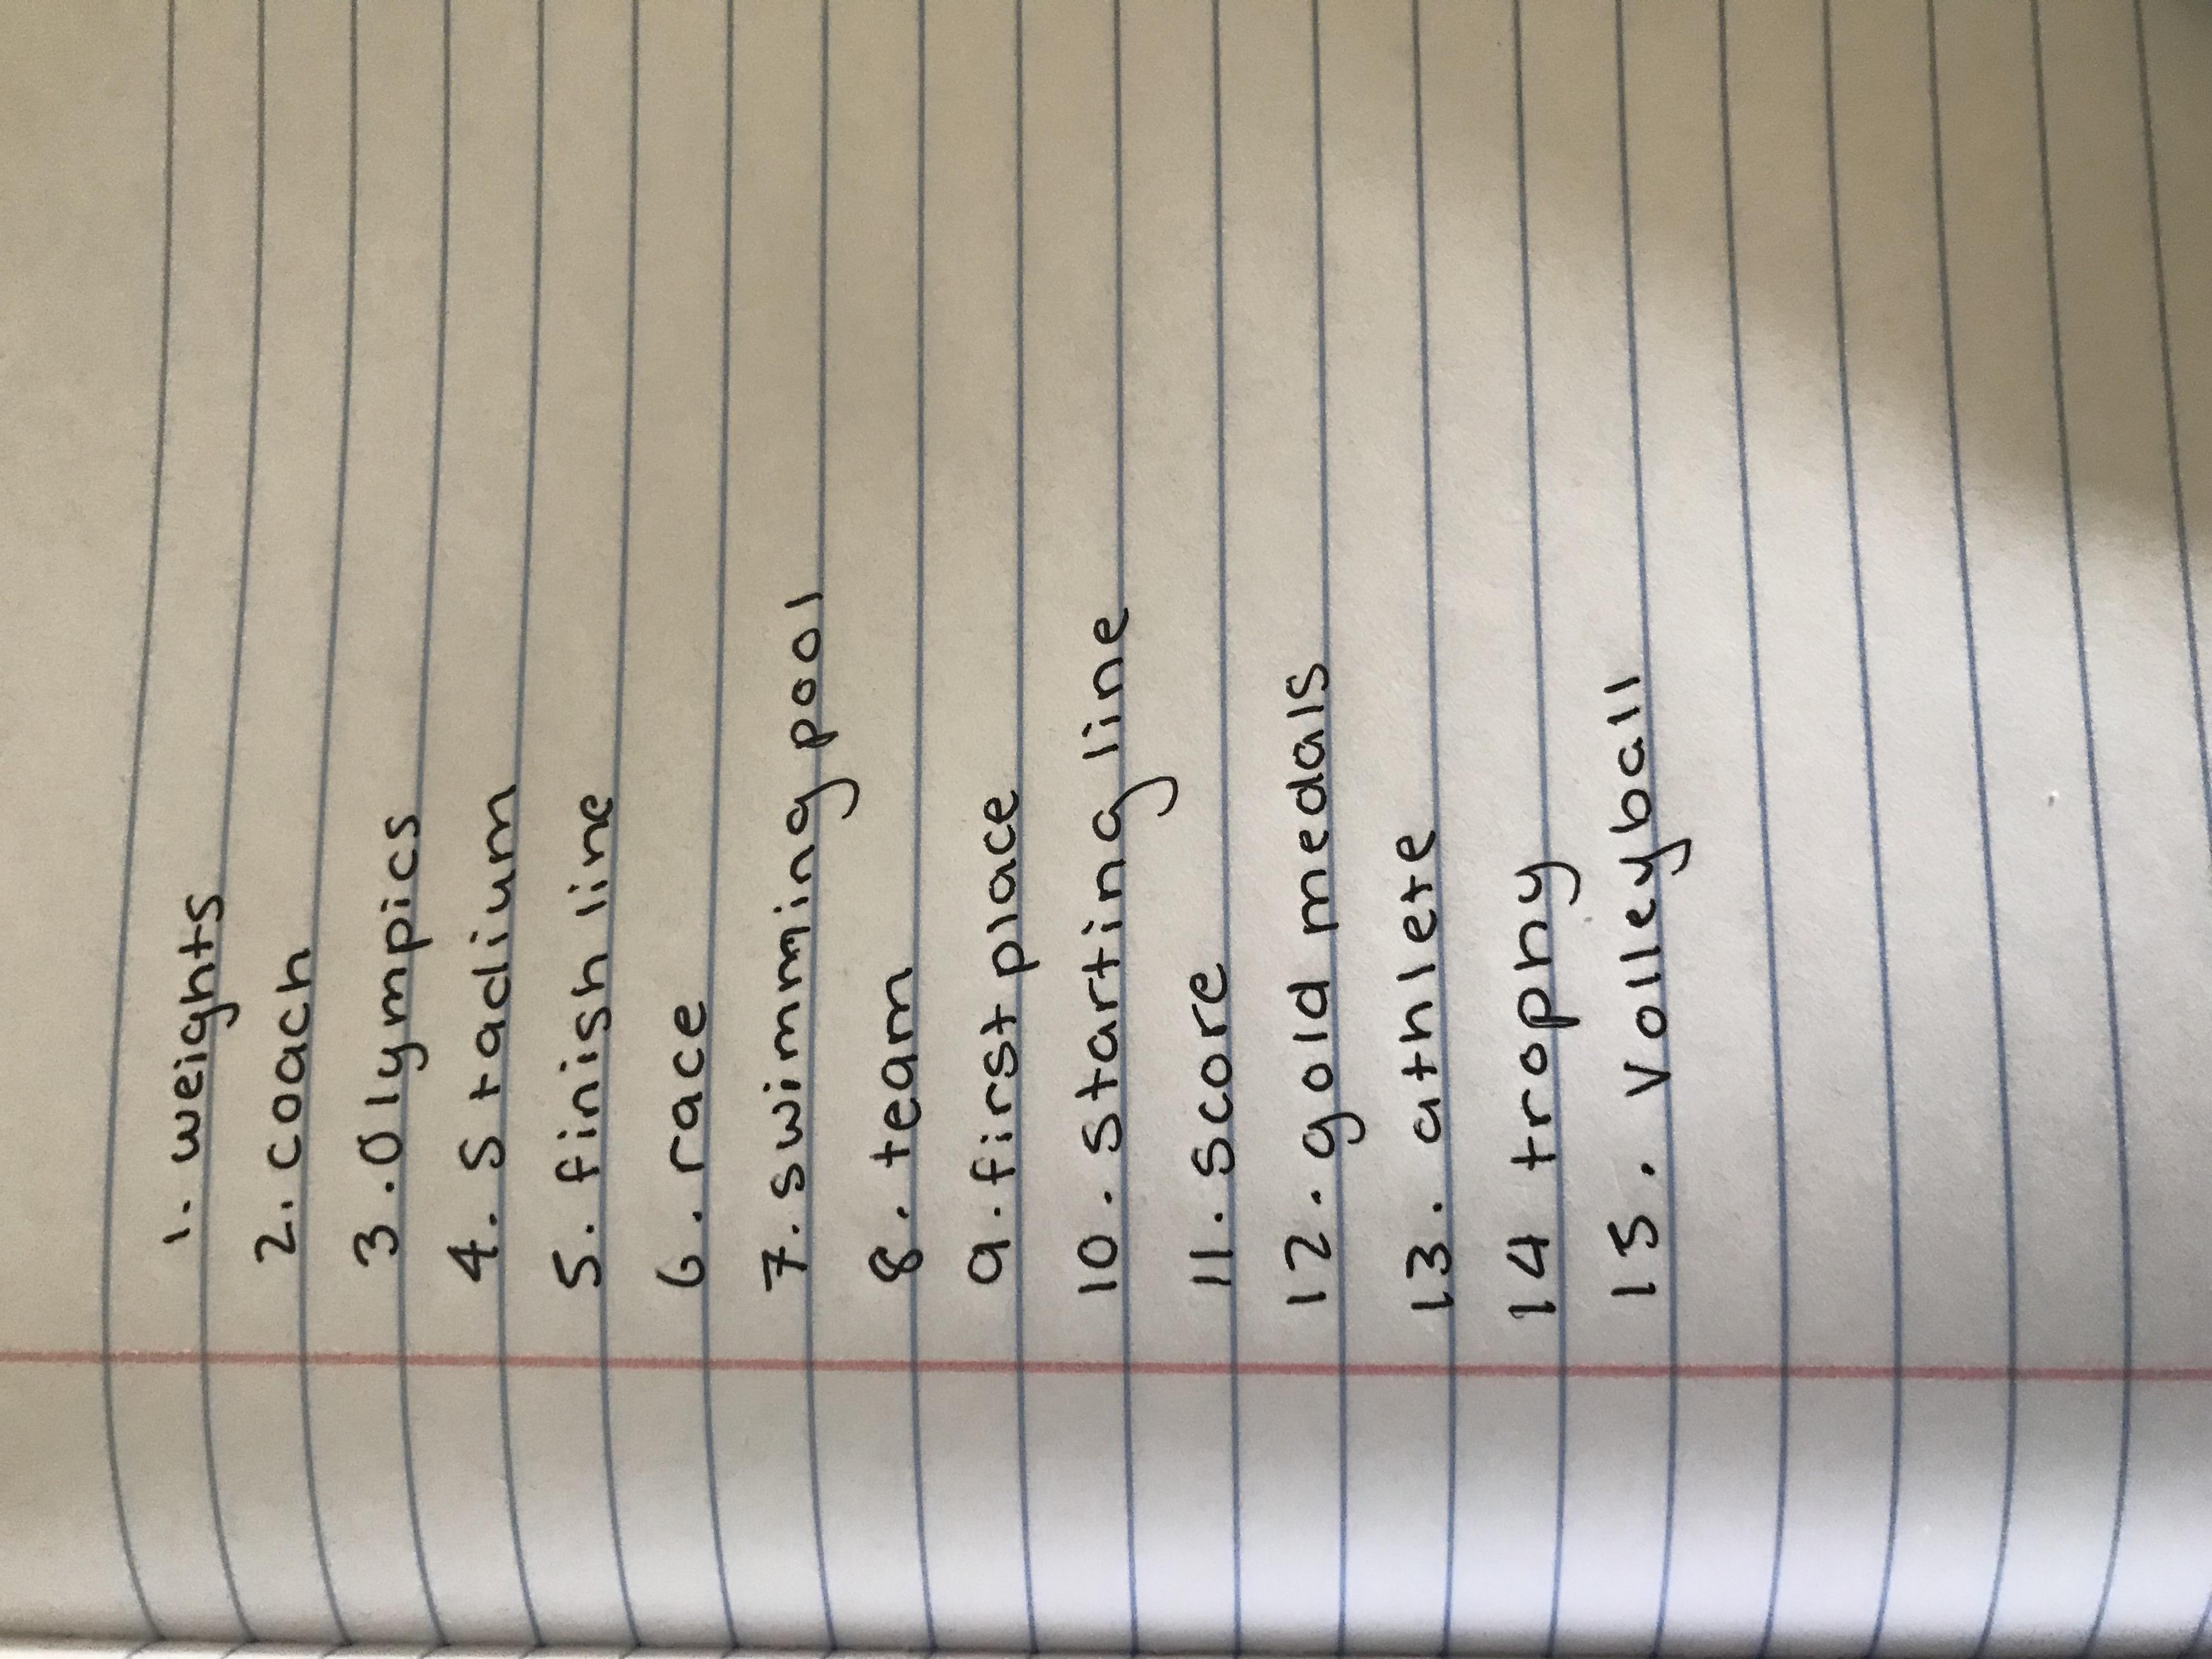 1. weights
2. coach
3. Olympics
4. Stadium
5. finish line
6. race
7. swimming pool
8. team
9. first place
10. starting line
11. score
12. gold medals
13. athlete
14 trophy
15. Volleyball